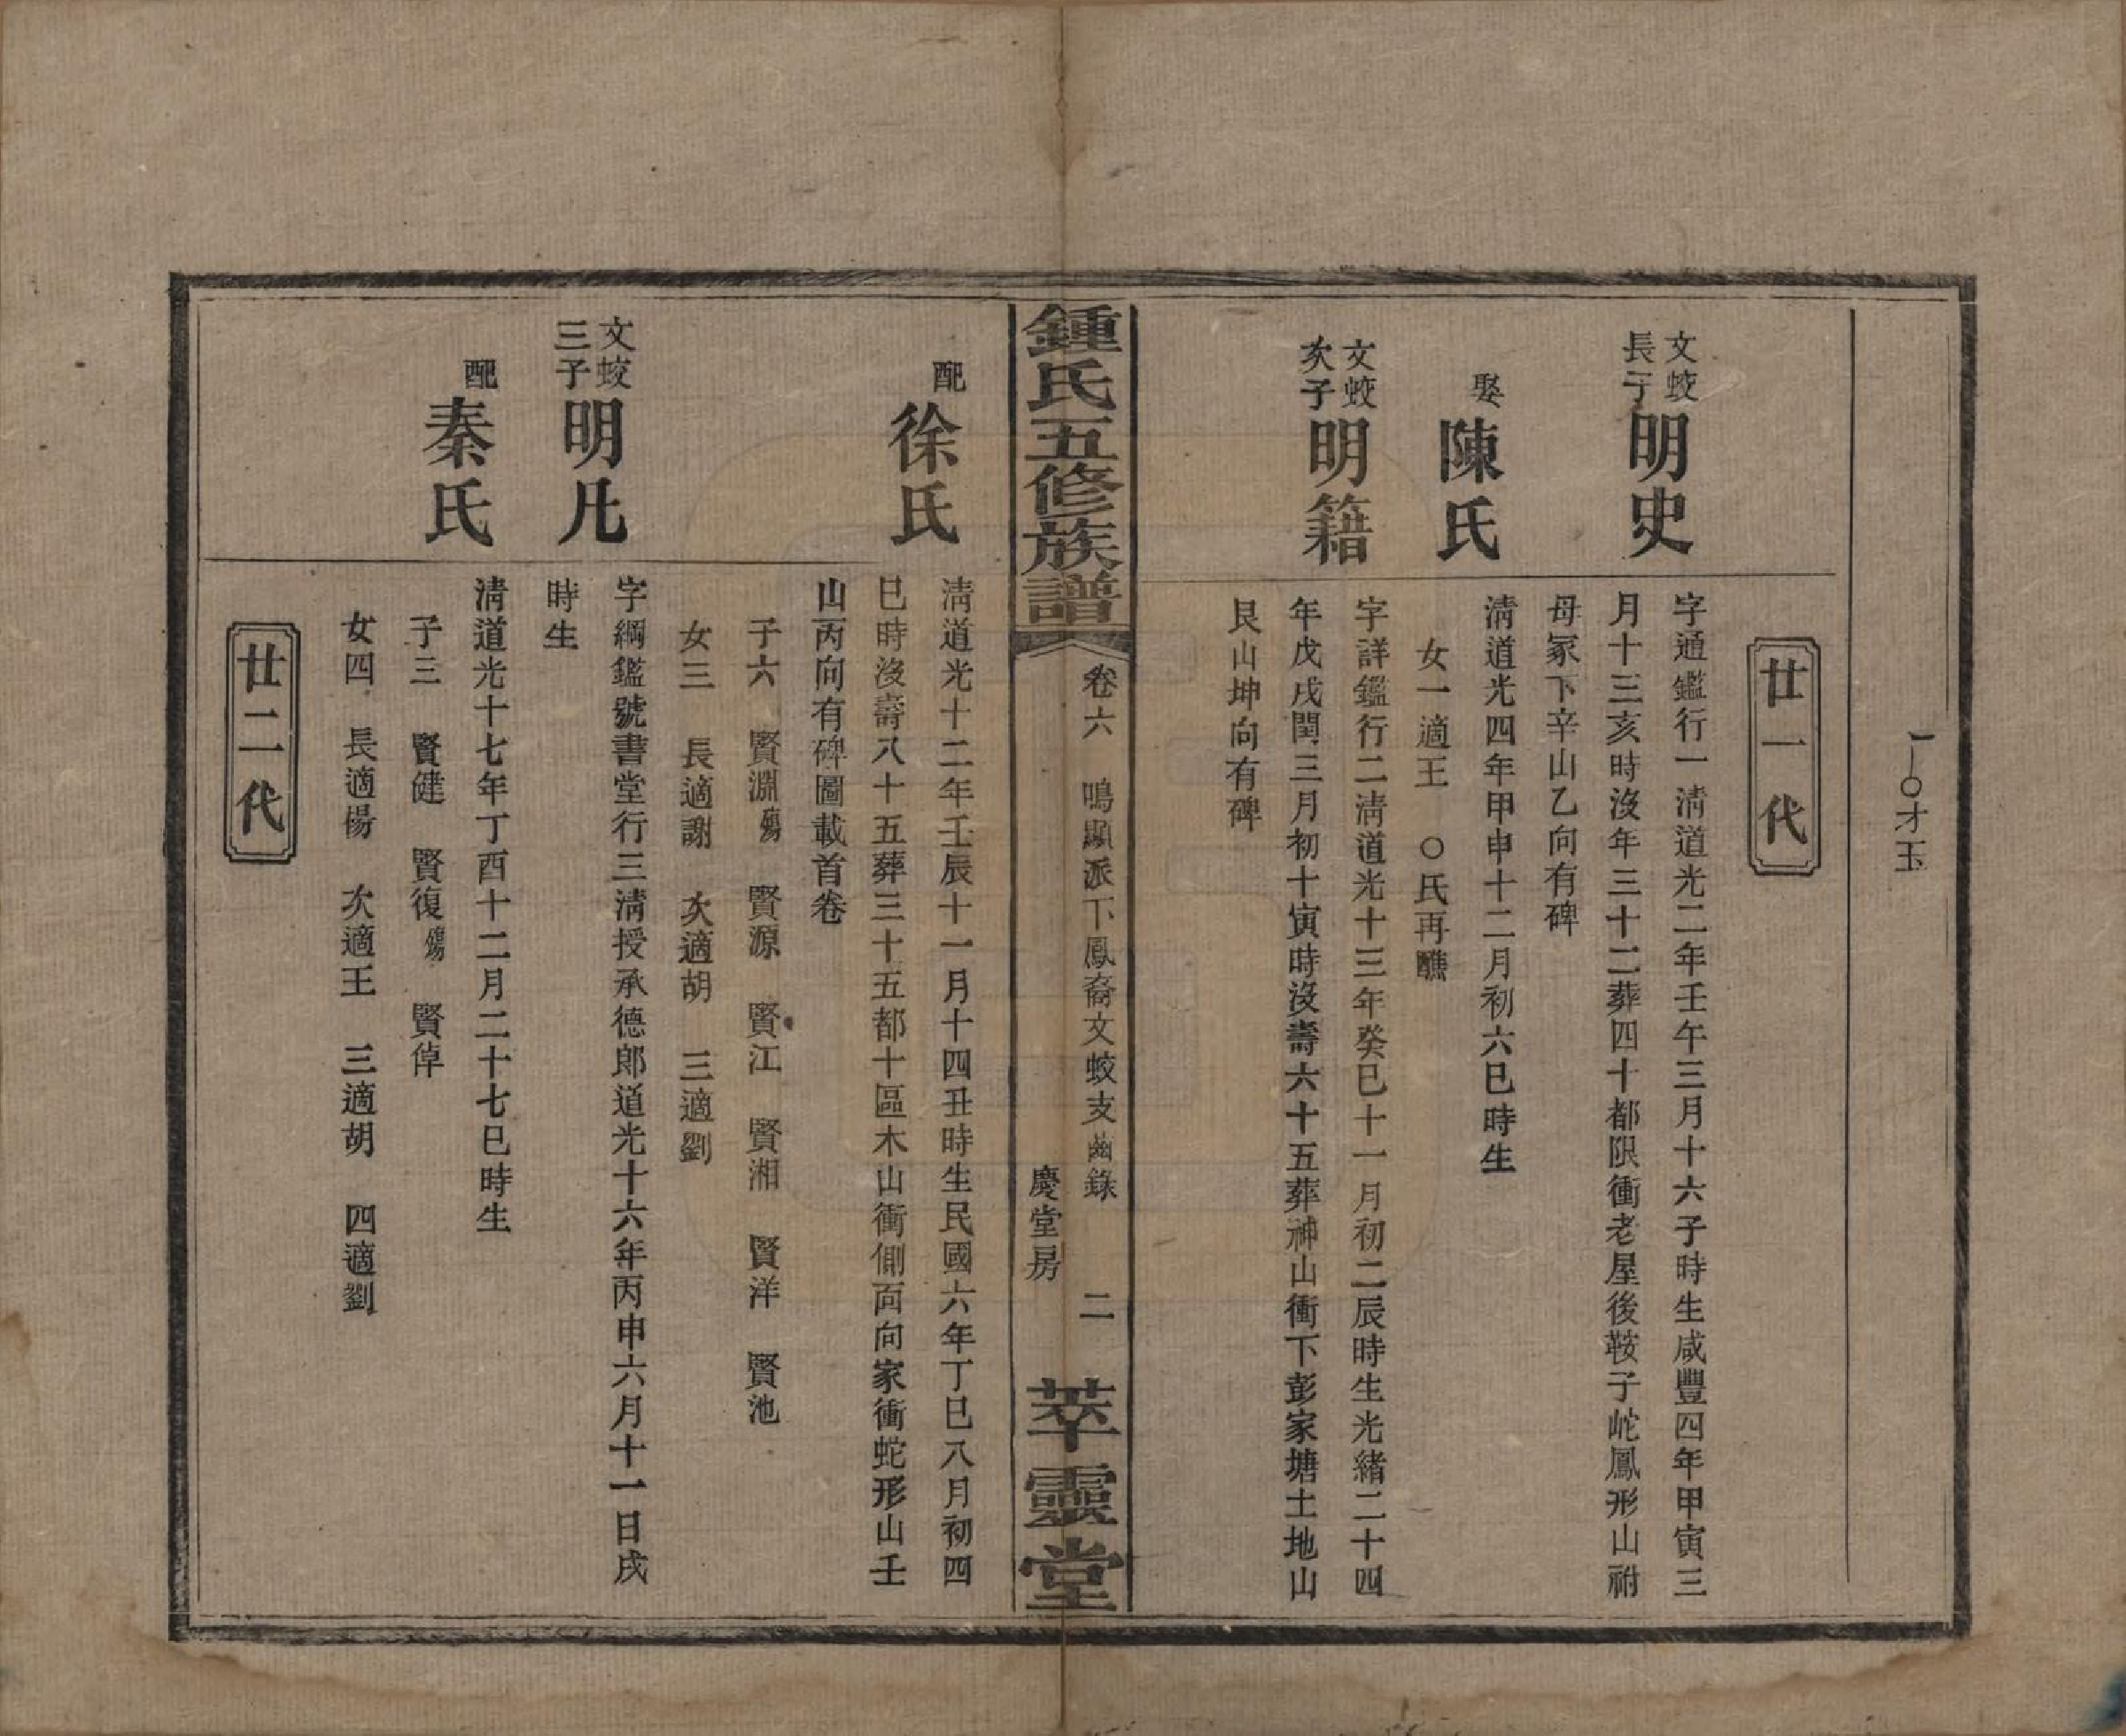 一〇才玉
廿一代
文蛟長子明史
字通鑑行一淸道光二年壬午三月十六子時生咸豐四年甲寅三
月十三亥時沒年三十二葬四十都限衝老屋後鞍子岮鳳形山祔
母冢下辛山乙向有碑
娶陳氏
淸道光四年甲申十二月初六巳時生
女一適王　〇氏再醮
文蛟次子明籍
字詳鑑行二淸道光十三年癸巳十一月初二辰時生光緖二十四
年戊戌閏三月初十寅時沒壽六十五葬神山衝下彭家塘土地山
艮山坤向有碑
鍾氏五修族譜
卷六　鳴顯派下鳳裔文蛟支齒錄　二
慶堂房
萃靈堂
配徐氏
淸道光十二年壬辰十一月十四丑時生民國六年丁巳八月初四
巳時沒壽八十五葬三十五都十區木山衝側面向家衝蛇形山壬
山丙向有碑圖載首卷
子六　賢淵殤　賢源　賢江　賢湘　賢洋　賢池
女三　長適謝　次適胡　三適劉
文蛟三子明凡
字綱鑑號書堂行三淸授承德郞道光十六年丙申六月十一日戌
時生
配秦氏
淸道光十七年丁酉十二月二十七巳時生
子三　賢健　賢復殤　賢倬
女四　長適楊　次適王　三適胡　四適劉
廿二代